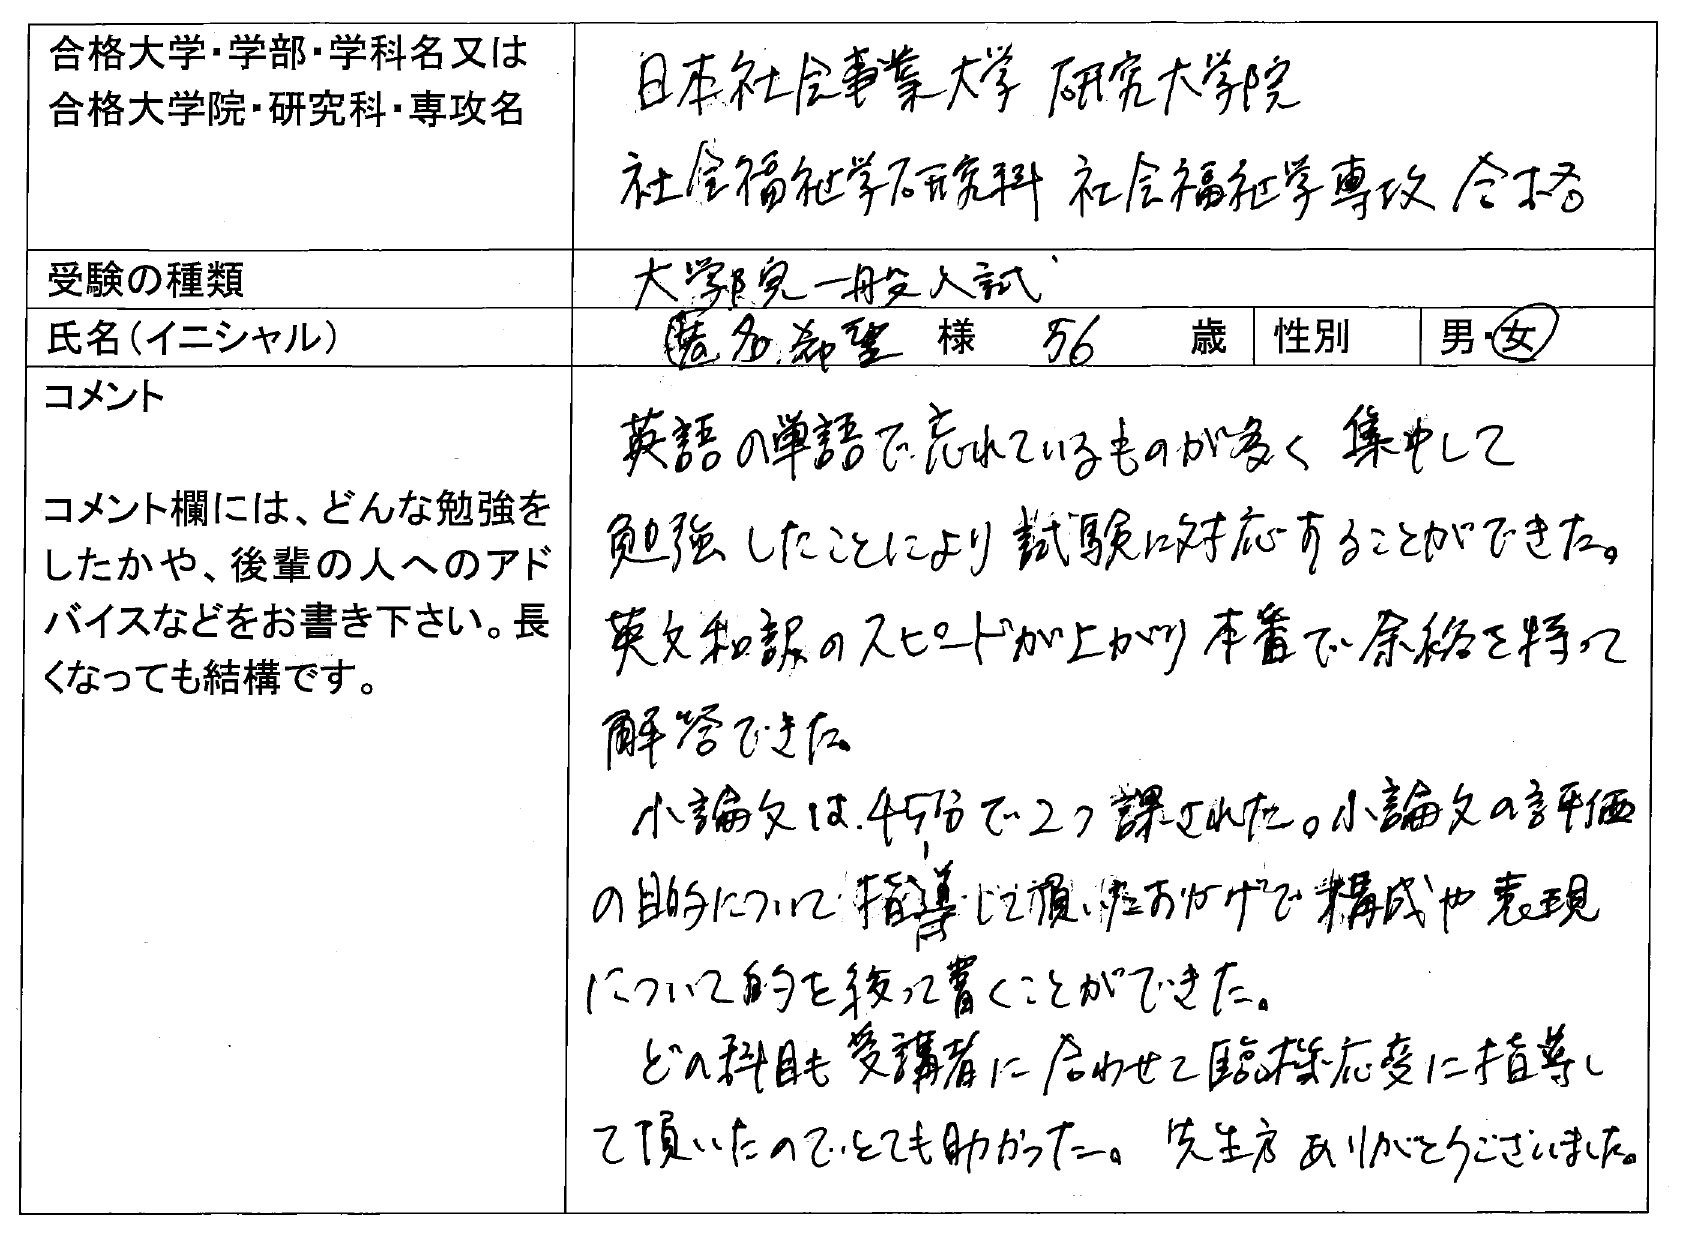 合格大学・学部・学科名又は
合格大学院・研究科・専攻名
日本社会事業大学 研究大学院
社会福祉学研究科 社会福祉学専攻 合格
受験の種類
大学院一般入試
氏名(イニシャル)
匿名希望 様 56 歳 性別 男・女
コメント
コメント欄には、どんな勉強を
したかや、後輩の人へのアド
バイスなどをお書き下さい。長
くなっても結構です。
英語の単語で忘れているものが多く 集中して
勉強したことにより試験に対応することができた。
英文和訳のスピードが上がり本番で余裕を持って
解答できた。
小論文は45分で2つ課された。小論文の評価
の目的について指導して頂いたおかげで構成や表現
について的を絞って書くことができた。
どの科目も受講者に合わせて臨機応変に指導し
て頂いたのでとても助かった。 先生方ありがとうございました。